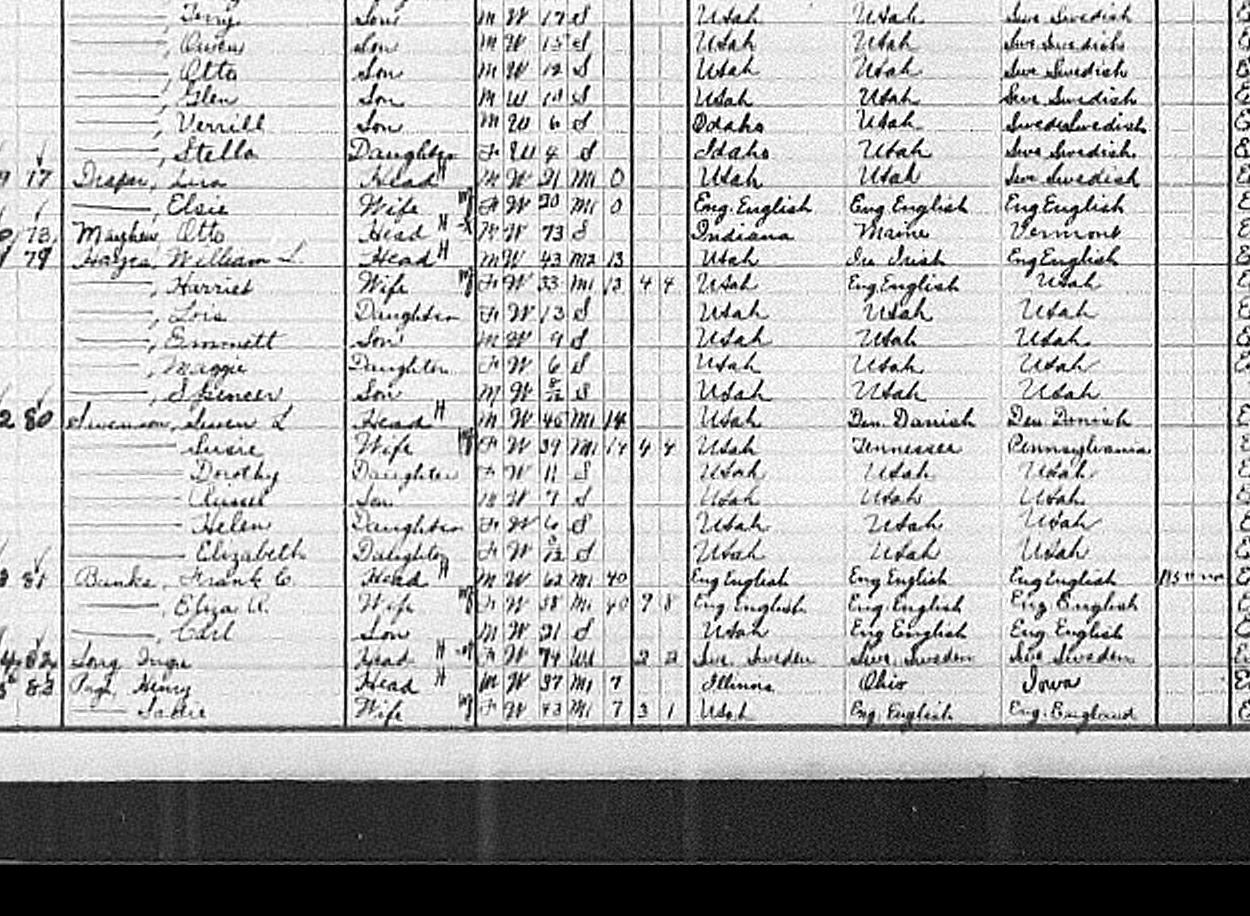 Son M W 17 S Utah Utah Swe Swedish
Owen Son M W 15 S Utah Utah Swe Swedish
Otto Son M W 12 S Utah Utah Swe Swedish
Glen Son M W 10 S Utah Utah Swe Swedish
Verrill Son M W 6 S Idaho Utah Swede Swedish
Stella Daughter F W 4 S Idaho Utah Swe Swedish
Draper, Head H M W 21 M1 0 Utah Utah Swe Swedish
Elsie Wife F W 20 M1 0 Eng. English Eng English Eng English
Mayhew, Otto Head H M W 73 S Indiana Maine Vermont
79 Hayes, William L Head H M W 43 M2 13 Utah Ire Irish Eng English
Harriet Wife F W 33 M1 13 4 4 Utah Eng. English Utah
Lois Daughter F W 13 S Utah Utah Utah
Emmett Son M W 9 S Utah Utah Utah
Maggie Daughter F W 6 S Utah Utah Utah
Spencer Son M W S Utah Utah Utah
2 80 Swenson, Swen L Head H M W 45 M1 14 Utah Den. Danish Den Danish
Susie Wife F W 39 M1 14 4 4 Utah Tennessee Pennsylvania
Dorothy Daughter F W 11 S Utah Utah Utah
Son W 7 S Utah Utah Utah
Helen Daughter F W 6 S Utah Utah Utah
Elizabeth Daughter F W S Utah Utah Utah
81 Banks, Frank C. Head H M W 62 M1 40 Eng English Eng English Eng English
Eliza A. Wife F W 58 M1 40 9 8 Eng English Eng. English Eng English
Carl Son M W 21 S Utah Eng English Eng. English
82 Long Inga Head H F W 74 Wd 2 2 Swe. Sweden Swe. Sweden Swe Sweden
83 Henry Head H M W 37 M1 7 Illinois Ohio Iowa
Sadie Wife F W 43 M1 7 3 1 Utah Eng. English Eng. England